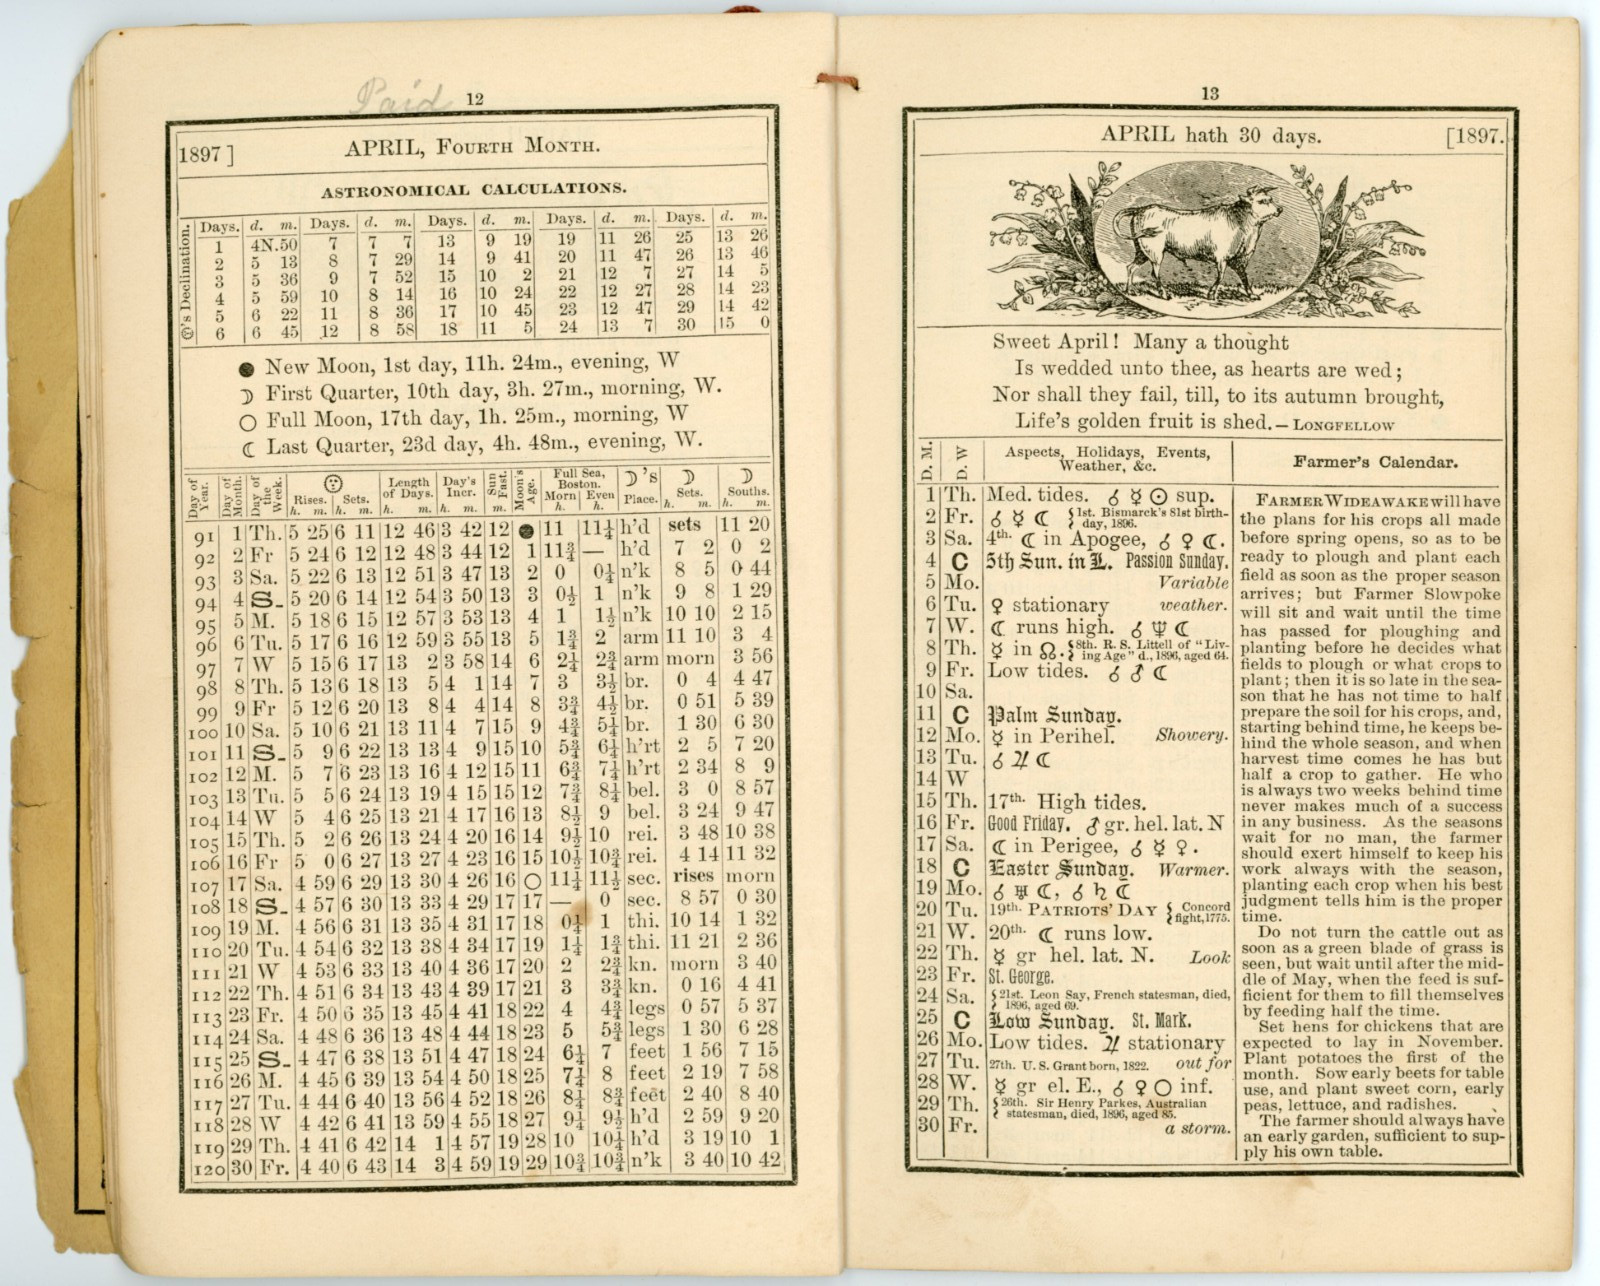 Paid
12
1897] APRIL, FOURTH MONTH.
ASTRONOMICAL CALCULATIONS.
☉'s Declination.
Days. d. m. Days. d. m. Days. d. m. Days. d. m. Days. d. m.
1 4N.50 7 7 7 13 9 19 19 11 26 25 13 26
2 5 13 8 7 29 14 9 41 20 11 47 26 13 46
3 5 36 9 7 52 15 10 2 21 12 7 27 14 5
4 5 59 10 8 14 16 10 24 22 12 27 28 14 23
5 6 22 11 8 36 17 10 45 23 12 47 29 14 42
6 6 45 12 8 58 18 11 5 24 13 7 30 15 0
● New Moon, 1st day, 11h. 24m., evening, W
☽ First Quarter, 10th day, 3h. 27m., morning, W.
○ Full Moon, 17th day, 1h. 25m., morning, W
☾ Last Quarter, 23d day, 4h. 48m., evening, W.
Day of Year. Day of Month. Day of the Week. ☉ Rises. h. m. Sets. h. m. Length of Days. h. m. Day's Incr. h. m. Sun Fast. m. Moon's Age. Full Sea, Boston. Morn h. Even h. ☽'s Place. ☽ Sets. h. m. ☽ Souths. h. m.
91 1 Th. 5 25 6 11 12 46 3 42 12 ● 11 11¼ h'd sets 11 20
92 2 Fr 5 24 6 12 12 48 3 44 12 1 11¾ — h'd 7 2 0 2
93 3 Sa. 5 22 6 13 12 51 3 47 13 2 0 0¼ n'k 8 5 0 44
94 4 S. 5 20 6 14 12 54 3 50 13 3 0½ 1 n'k 9 8 1 29
95 5 M. 5 18 6 15 12 57 3 53 13 4 1 1½ n'k 10 10 2 15
96 6 Tu. 5 17 6 16 12 59 3 55 13 5 1¾ 2 arm 11 10 3 4
97 7 W 5 15 6 17 13 2 3 58 14 6 2¼ 2¾ arm morn 3 56
98 8 Th. 5 13 6 18 13 5 4 1 14 7 3 3½ br. 0 4 4 47
99 9 Fr 5 12 6 20 13 8 4 4 14 8 3¾ 4½ br. 0 51 5 39
100 10 Sa. 5 10 6 21 13 11 4 7 15 9 4¾ 5¼ br. 1 30 6 30
101 11 S. 5 9 6 22 13 13 4 9 15 10 5¾ 6¼ h'rt 2 5 7 20
102 12 M. 5 7 6 23 13 16 4 12 15 11 6¾ 7¼ h'rt 2 34 8 9
103 13 Tu. 5 5 6 24 13 19 4 15 15 12 7¾ 8¼ bel. 3 0 8 57
104 14 W 5 4 6 25 13 21 4 17 16 13 8½ 9 bel. 3 24 9 47
105 15 Th. 5 2 6 26 13 24 4 20 16 14 9½ 10 rei. 3 48 10 38
106 16 Fr 5 0 6 27 13 27 4 23 16 15 10½ 10¾ rei. 4 14 11 32
107 17 Sa. 4 59 6 29 13 30 4 26 16 ○ 11¼ 11½ sec. rises morn
108 18 S. 4 57 6 30 13 33 4 29 17 17 — 0 sec. 8 57 0 30
109 19 M. 4 56 6 31 13 35 4 31 17 18 0¼ 1 thi. 10 14 1 32
110 20 Tu. 4 54 6 32 13 38 4 34 17 19 1¼ 1¾ thi. 11 21 2 36
111 21 W 4 53 6 33 13 40 4 36 17 20 2 2¾ kn. morn 3 40
112 22 Th. 4 51 6 34 13 43 4 39 17 21 3 3¾ kn. 0 16 4 41
113 23 Fr. 4 50 6 35 13 45 4 41 18 22 4 4¾ legs 0 57 5 37
114 24 Sa. 4 48 6 36 13 48 4 44 18 23 5 5¾ legs 1 30 6 28
115 25 S. 4 47 6 38 13 51 4 47 18 24 6¼ 7 feet 1 56 7 15
116 26 M. 4 45 6 39 13 54 4 50 18 25 7¼ 8 feet 2 19 7 58
117 27 Tu. 4 44 6 40 13 56 4 52 18 26 8¼ 8¾ feet 2 40 8 40
118 28 W 4 42 6 41 13 59 4 55 18 27 9¼ 9½ h'd 2 59 9 20
119 29 Th. 4 41 6 42 14 1 4 57 19 28 10 10¼ h'd 3 19 10 1
120 30 Fr. 4 40 6 43 14 3 4 59 19 29 10¾ 10¾ n'k 3 40 10 42
13
APRIL hath 30 days. [1897.
Sweet April! Many a thought
Is wedded unto thee, as hearts are wed;
Nor shall they fail, till, to its autumn brought,
Life's golden fruit is shed.—LONGFELLOW
D. M. D. W Aspects, Holidays, Events, Weather, &c.
1 Th. Med. tides. ☌ ☿ ☉ sup.
2 Fr. ☌ ☿ ☾ {1st. Bismarck's 81st birthday, 1896.
3 Sa. 4th. ☾ in Apogee, ☌ ♀ ☾.
4 C 5th Sun. in L. Passion Sunday.
5 Mo. Variable
6 Tu. ♀ stationary weather.
7 W. ☾ runs high. ☌ ♆ ☾
8 Th. ☿ in ☊. {8th. R. S. Littell of "Living Age" d., 1896, aged 64.
9 Fr. Low tides. ☌ ♂ ☾
10 Sa.
11 C Palm Sunday.
12 Mo. ☿ in Perihel. Showery.
13 Tu. ☌ ♃ ☾
14 W
15 Th. 17th. High tides.
16 Fr. Good Friday. ♂ gr. hel. lat. N
17 Sa. ☾ in Perigee, ☌ ☿ ♀.
18 C Easter Sunday. Warmer.
19 Mo. ☌ ♅ ☾, ☌ ♄ ☾
20 Tu. 19th. PATRIOTS' DAY {Concord fight, 1775.
21 W. 20th. ☾ runs low.
22 Th. ☿ gr hel. lat. N. Look
23 Fr. St. George.
24 Sa. {21st. Leon Say, French statesman, died, 1896, aged 69.
25 C Low Sunday. St. Mark.
26 Mo. Low tides. ♃ stationary
27 Tu. 27th. U. S. Grant born, 1822. out for
28 W. ☿ gr el. E., ☌ ♀ ○ inf.
29 Th. {26th. Sir Henry Parkes, Australian statesman, died, 1896, aged 85.
30 Fr. a storm.
Farmer's Calendar.
FARMER WIDEAWAKE will have
the plans for his crops all made
before spring opens, so as to be
ready to plough and plant each
field as soon as the proper season
arrives; but Farmer Slowpoke
will sit and wait until the time
has passed for ploughing and
planting before he decides what
fields to plough or what crops to
plant; then it is so late in the sea-
son that he has not time to half
prepare the soil for his crops, and,
starting behind time, he keeps be-
hind the whole season, and when
harvest time comes he has but
half a crop to gather. He who
is always two weeks behind time
never makes much of a success
in any business. As the seasons
wait for no man, the farmer
should exert himself to keep his
work always with the season,
planting each crop when his best
judgment tells him is the proper
time.
Do not turn the cattle out as
soon as a green blade of grass is
seen, but wait until after the mid-
dle of May, when the feed is suf-
ficient for them to fill themselves
by feeding half the time.
Set hens for chickens that are
expected to lay in November.
Plant potatoes the first of the
month. Sow early beets for table
use, and plant sweet corn, early
peas, lettuce, and radishes.
The farmer should always have
an early garden, sufficient to sup-
ply his own table.